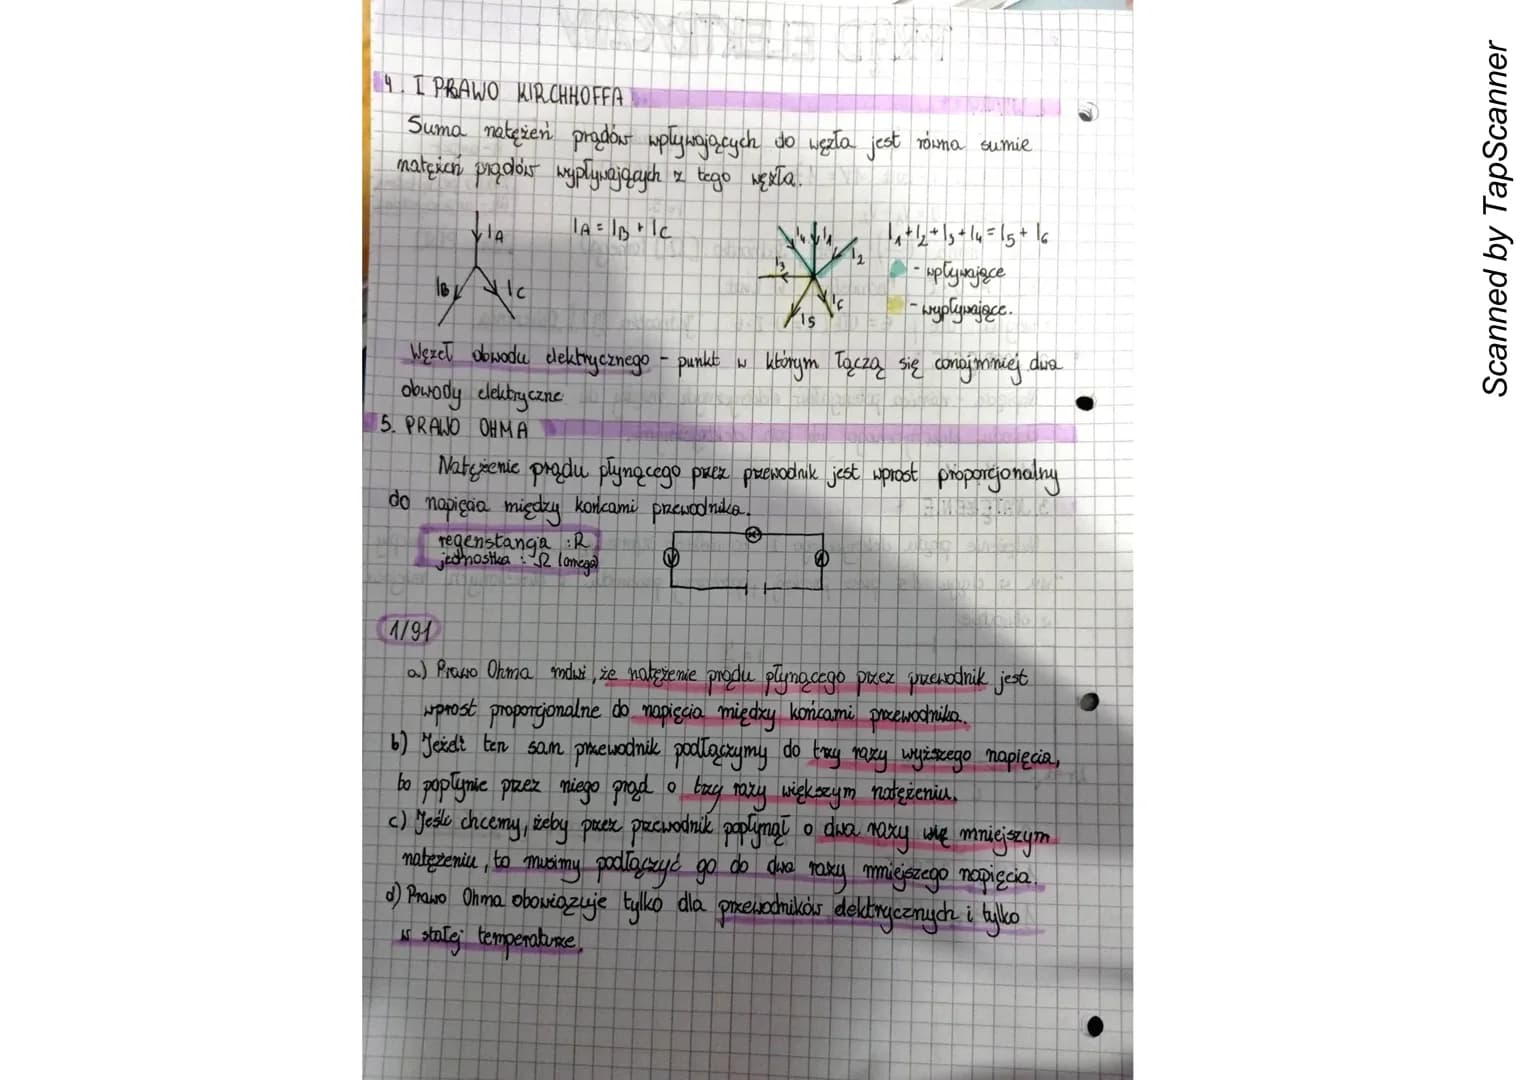 4. I PRAWO KIRCHHOFFA
Suma natężeń prądów wpływających do węzła jest równa sumie
natężeń prądów wypływających z tego węzła.
IA
IB
IC
IA = IB + IC
I4 I1
I2
I3
I5
I6
I1+I2+I3+I4=I5+I6
- wpływające
- wypływające.
Węzeł obwodu elektrycznego - punkt w którym łączą się conajmniej dwa
obwody elektryczne
5. PRAWO OHMA
Natężenie prądu płynącego przez przewodnik jest wprost proporcjonalny
do napięcia między końcami przewodnika.
regenstancja : R
jednostka : Ω (omega)
V
A
1/91
a) Prawo Ohma mówi, że natężenie prądu płynącego przez przewodnik jest
wprost proporcjonalne do napięcia między końcami przewodnika.
b) Jeżeli ten sam przewodnik podłączymy do trzy razy wyższego napięcia,
to popłynie przez niego prąd o trzy razy większym natężeniu.
c) Jeśli chcemy, żeby przez przewodnik popłynął o dwa razy mniejszym
natężeniu, to musimy podłączyć go do dwa razy mniejszego napięcia.
d) Prawo Ohma obowiązuje tylko dla przewodników elektrycznych i tylko
w stałej temperaturze.
Scanned by TapScanner